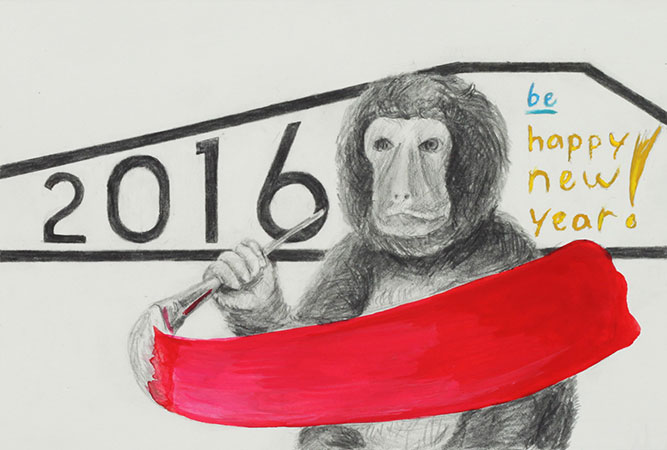 2016
be
happy
new
year!